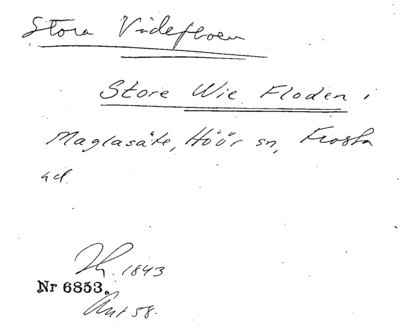 Stora Videfloen
Store Wie Floden i
Maglasäte, Höör sn, Frosta
hd.
Th. 1843
Nr 6853.
Ant 58.